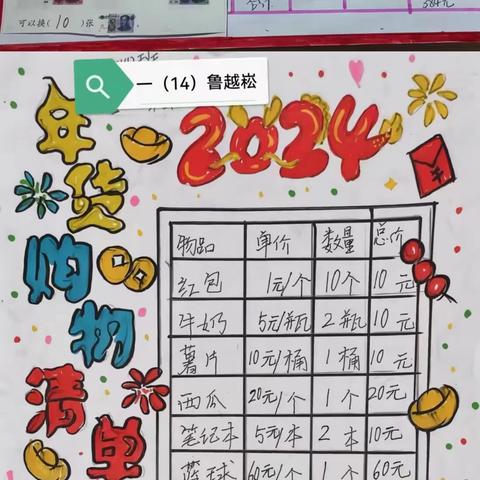 可以换(10)张
合计
384元
一（14）鲁越崧
2024
年货购物清单
物品 单价 数量 总价
红包 1元/个 10个 10元
牛奶 5元/瓶 2瓶 10元
薯片 10元/桶 1桶 10元
西瓜 20元/个 1个 20元
笔记本 5元/本 2本 10元
篮球 60元/个 1个 60元